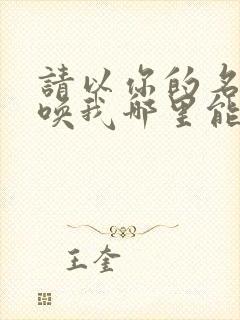 請以你的名
喚我 哪里能
王奎